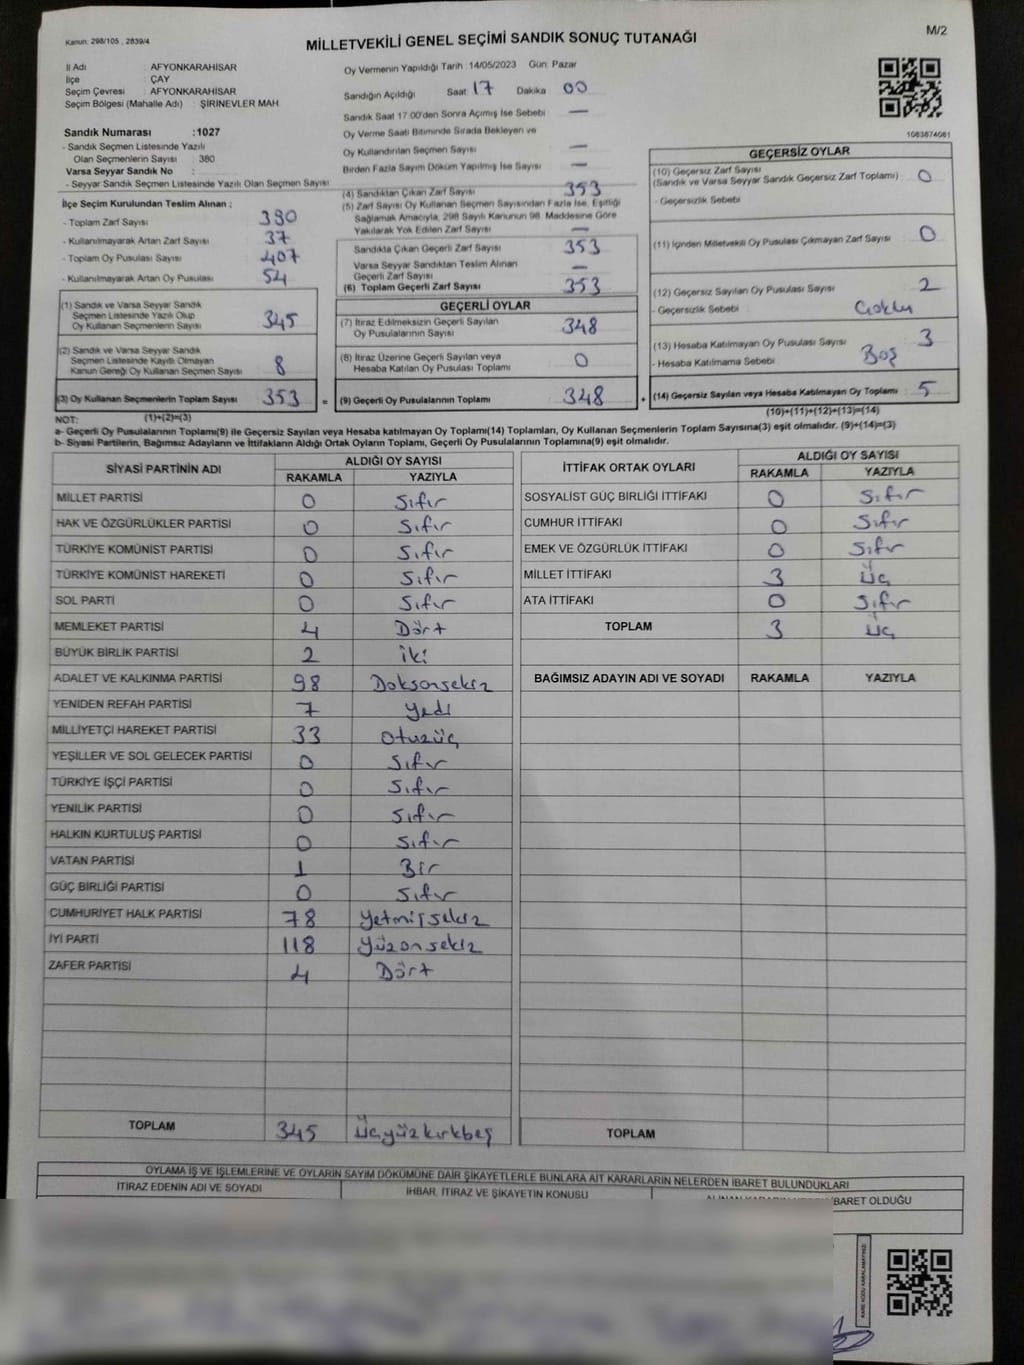 Kanun: 298/105 , 2839/4
M/2
MİLLETVEKİLİ GENEL SEÇİMİ SANDIK SONUÇ TUTANAĞI
İl Adı : AFYONKARAHİSAR
İlçe : ÇAY
Seçim Çevresi : AFYONKARAHİSAR
Seçim Bölgesi (Mahalle Adı) : ŞİRİNEVLER MAH.
Sandık Numarası : 1027
- Sandık Seçmen Listesinde Yazılı
Olan Seçmenlerin Sayısı : 380
Varsa Seyyar Sandık No :
- Seyyar Sandık Seçmen Listesinde Yazılı Olan Seçmen Sayısı :
İlçe Seçim Kurulundan Teslim Alınan :
- Toplam Zarf Sayısı 390
- Kullanılmayarak Artan Zarf Sayısı 37
- Toplam Oy Pusulası Sayısı 407
- Kullanılmayarak Artan Oy Pusulası 54
(1) Sandık ve Varsa Seyyar Sandık
Seçmen Listesinde Yazılı Olup
Oy Kullanan Seçmenlerin Sayısı 345
(2) Sandık ve Varsa Seyyar Sandık
Seçmen Listesinde Kayıtlı Olmayan
Kanun Gereği Oy Kullanan Seçmen Sayısı 8
(3) Oy Kullanan Seçmenlerin Toplam Sayısı 353 =
(1)+(2)=(3)
Oy Vermenin Yapıldığı Tarih :14/05/2023 Gün: Pazar
Sandığın Açıldığı Saat 17 Dakika 00
Sandık Saat 17:00'den Sonra Açılmış İse Sebebi —
Oy Verme Saati Bitiminde Sırada Bekleyen ve
Oy Kullandırılan Seçmen Sayısı —
Birden Fazla Sayım Döküm Yapılmış İse Sayısı —
(4) Sandıktan Çıkan Zarf Sayısı 353
(5) Zarf Sayısı Oy Kullanan Seçmen Sayısından Fazla İse, Eşitliği
Sağlamak Amacıyla, 298 Sayılı Kanunun 98. Maddesine Göre
Yakılarak Yok Edilen Zarf Sayısı —
Sandıkta Çıkan Geçerli Zarf Sayısı 353
Varsa Seyyar Sandıktan Teslim Alınan
Geçerli Zarf Sayısı —
(6) Toplam Geçerli Zarf Sayısı 353
GEÇERLİ OYLAR
(7) İtiraz Edilmeksizin Geçerli Sayılan
Oy Pusulalarının Sayısı 348
(8) İtiraz Üzerine Geçerli Sayılan veya
Hesaba Katılan Oy Pusulası Toplamı 0
(9) Geçerli Oy Pusulalarının Toplamı 348 +
1083874061
GEÇERSİZ OYLAR
(10) Geçersiz Zarf Sayısı
(Sandık ve Varsa Seyyar Sandık Geçersiz Zarf Toplamı) 0
- Geçersizlik Sebebi
(11) İçinden Milletvekili Oy Pusulası Çıkmayan Zarf Sayısı 0
(12) Geçersiz Sayılan Oy Pusulası Sayısı 2
- Geçersizlik Sebebi Çoklu
(13) Hesaba Katılmayan Oy Pusulası Sayısı 3
- Hesaba Katılmama Sebebi Boş
(14) Geçersiz Sayılan veya Hesaba Katılmayan Oy Toplamı 5
(10)+(11)+(12)+(13)=(14)
NOT:
a- Geçerli Oy Pusulalarının Toplamı(9) ile Geçersiz Sayılan veya Hesaba katılmayan Oy Toplamı(14) Toplamları, Oy Kullanan Seçmenlerin Toplam Sayısına(3) eşit olmalıdır. (9)+(14)=(3)
b- Siyasi Partilerin, Bağımsız Adayların ve İttifakların Aldığı Ortak Oyların Toplamı, Geçerli Oy Pusulalarının Toplamına(9) eşit olmalıdır.
SİYASİ PARTİNİN ADI ALDIĞI OY SAYISI
RAKAMLA YAZIYLA
MİLLET PARTİSİ 0 Sıfır
HAK VE ÖZGÜRLÜKLER PARTİSİ 0 Sıfır
TÜRKİYE KOMÜNİST PARTİSİ 0 Sıfır
TÜRKİYE KOMÜNİST HAREKETİ 0 Sıfır
SOL PARTİ 0 Sıfır
MEMLEKET PARTİSİ 4 Dört
BÜYÜK BİRLİK PARTİSİ 2 iki
ADALET VE KALKINMA PARTİSİ 98 Doksansekiz
YENİDEN REFAH PARTİSİ 7 Yedi
MİLLİYETÇİ HAREKET PARTİSİ 33 Otuzüç
YEŞİLLER VE SOL GELECEK PARTİSİ 0 Sıfır
TÜRKİYE İŞÇİ PARTİSİ 0 Sıfır
YENİLİK PARTİSİ 0 Sıfır
HALKIN KURTULUŞ PARTİSİ 0 Sıfır
VATAN PARTİSİ 1 Bir
GÜÇ BİRLİĞİ PARTİSİ 0 Sıfır
CUMHURİYET HALK PARTİSİ 78 Yetmişsekiz
İYİ PARTİ 118 Yüzonsekiz
ZAFER PARTİSİ 4 Dört
TOPLAM 345 Üçyüzkırkbeş
İTTİFAK ORTAK OYLARI ALDIĞI OY SAYISI
RAKAMLA YAZIYLA
SOSYALİST GÜÇ BİRLİĞİ İTTİFAKI 0 Sıfır
CUMHUR İTTİFAKI 0 Sıfır
EMEK VE ÖZGÜRLÜK İTTİFAKI 0 Sıfır
MİLLET İTTİFAKI 3 Üç
ATA İTTİFAKI 0 Sıfır
TOPLAM 3 Üç
BAĞIMSIZ ADAYIN ADI VE SOYADI RAKAMLA YAZIYLA
TOPLAM
OYLAMA İŞ VE İŞLEMLERİNE VE OYLARIN SAYIM DÖKÜMÜNE DAİR ŞİKAYETLERLE BUNLARA AİT KARARLARIN NELERDEN İBARET BULUNDUKLARI
İTİRAZ EDENİN ADI VE SOYADI İHBAR, İTİRAZ VE ŞİKAYETİN KONUSU İBARET OLDUĞU
KARE KODU KARALAMAYINIZ!